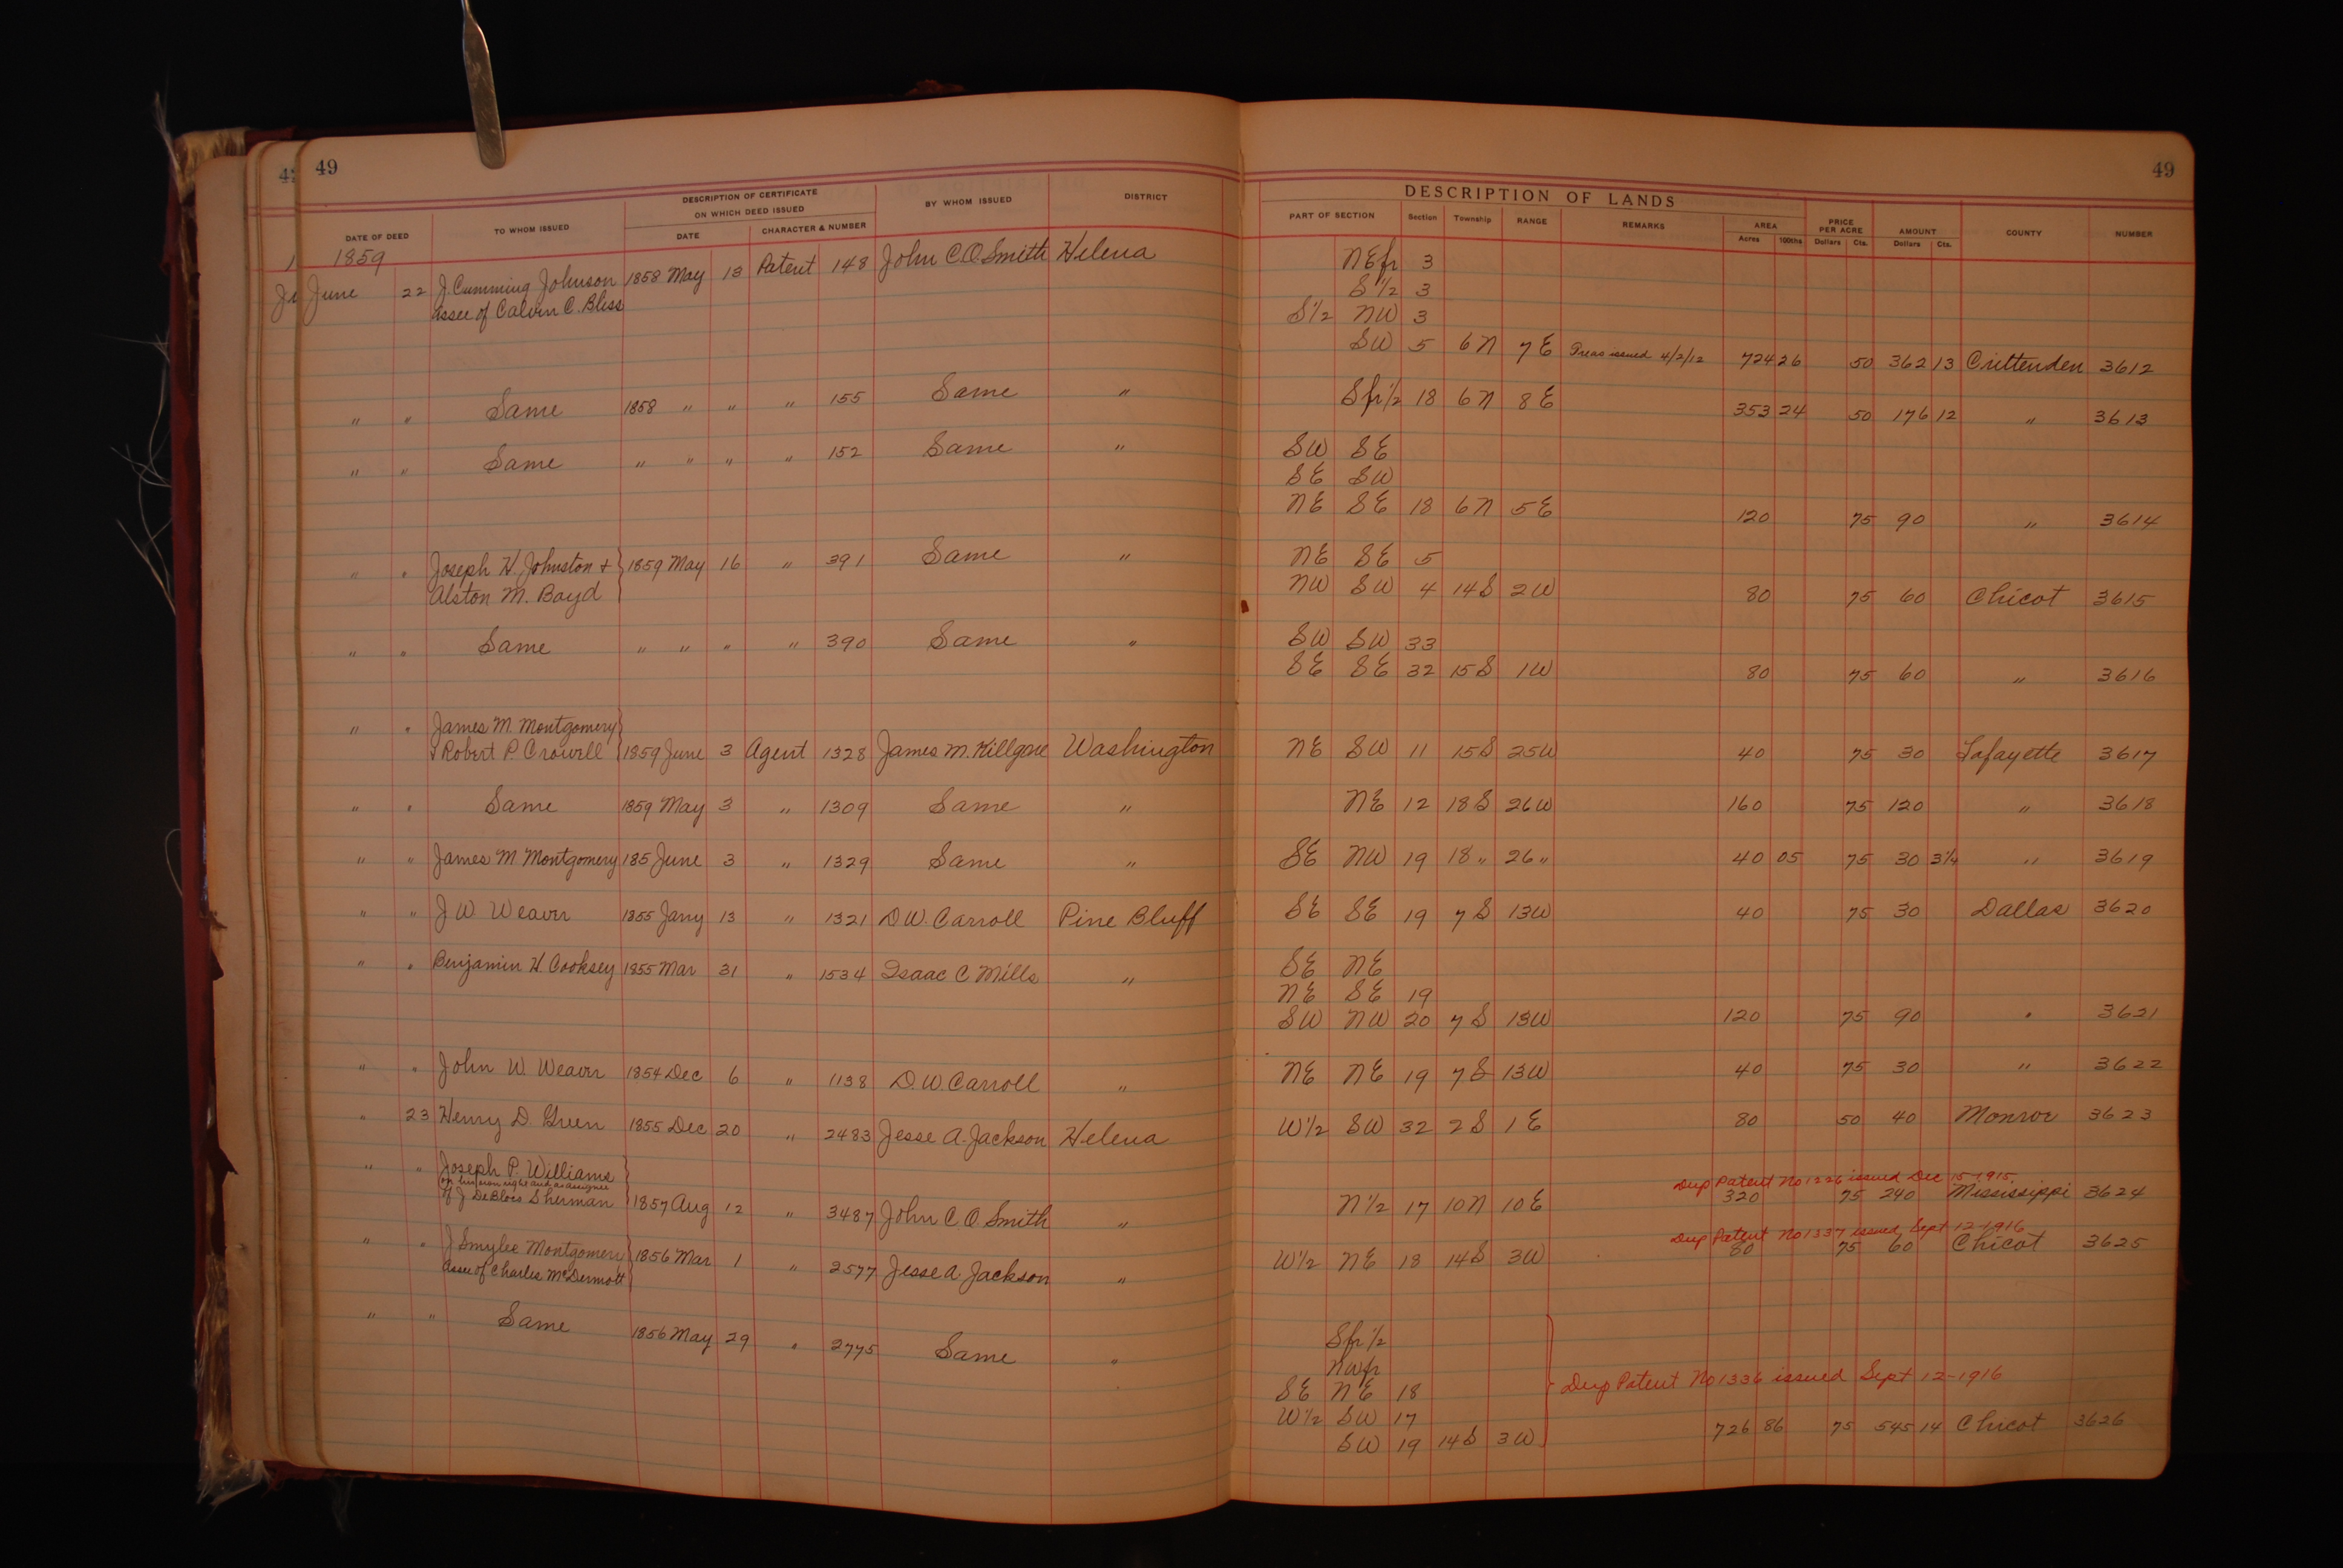 49
49
DESCRIPTION OF CERTIFICATE
ON WHICH DEED ISSUED
DATE OF DEED TO WHOM ISSUED DATE CHARACTER & NUMBER BY WHOM ISSUED DISTRICT
DESCRIPTION OF LANDS
PART OF SECTION Section Township RANGE REMARKS AREA PRICE PER ACRE AMOUNT COUNTY NUMBER
Acres 100ths Dollars Cts. Dollars Cts.
1859
June 22 J. Cumming Johnson 1858 May 13 Patent 148 John C. O. Smith Helena NEfr 3
assee of Calvin C. Bliss S 1/2 3
S 1/2 NW 3
SW 5 6N 7E issued 4/2/12 724 26 50 362 13 Crittenden 3612
" " Same 1858 " " " 155 Same " Sfr 1/2 18 6N 8E 353 24 50 176 12 " 3613
" " Same " " " " 152 Same " SW SE
SE SW
NE SE 18 6N 5E 120 75 90 " 3614
" " Joseph H. Johnston + } 1859 May 16 " 391 Same " NE SE 5
Alston M. Boyd NW SW 4 14S 2W 80 75 60 Chicot 3615
" " Same " " " " 390 Same " SW SW 33
SE SE 32 15S 1W 80 75 60 " 3616
" " James M. Montgomery }
& Robert P. Crowell 1859 June 3 Agent 1328 James M. Killgore Washington NE SW 11 15S 25W 40 75 30 Lafayette 3617
" " Same 1859 May 3 " 1309 Same " NE 12 18S 26W 160 75 120 " 3618
" " James M Montgomery 185 June 3 " 1329 Same " SE NW 19 18 " 26 " 40 05 75 30 3 3/4 " 3619
" " J. W. Weaver 1855 Jany 13 " 1321 D. W. Carroll Pine Bluff SE SE 19 7S 13W 40 75 30 Dallas 3620
" " Benjamin H. Cooksey 1855 Mar 31 " 1534 Isaac C Mills " SE NE
NE SE 19
SW NW 20 7S 13W 120 75 90 " 3621
" " John W. Weaver 1854 Dec 6 " 1138 D. W. Carroll " NE NE 19 7S 13W 40 75 30 " 3622
" 23 Henry D. Green 1855 Dec 20 " 2483 Jesse A. Jackson Helena W 1/2 SW 32 2S 1E 80 50 40 Monroe 3623
" " Joseph P. Williams }
in his own right and as assignee Dup Patent No 1226 issued Dec 15-1915.
of J DeBlois Sherman 1857 Aug 12 " 3487 John C O Smith " N 1/2 17 10N 10E 320 75 240 Mississippi 3624
Dup Patent No 1337 issued Sept 12-1916
" " J Smylie Montgomery } 1856 Mar 1 " 2577 Jesse A. Jackson " W 1/2 NE 18 14S 3W 80 75 60 Chicot 3625
assee of Charles McDermott
" " Same 1856 May 29 " 2775 Same " Sfr 1/2
NWfr
SE NE 18 Dup Patent No 1336 issued Sept 12-1916
W 1/2 SW 17
SW 19 14S 3W 726 86 75 545 14 Chicot 3626